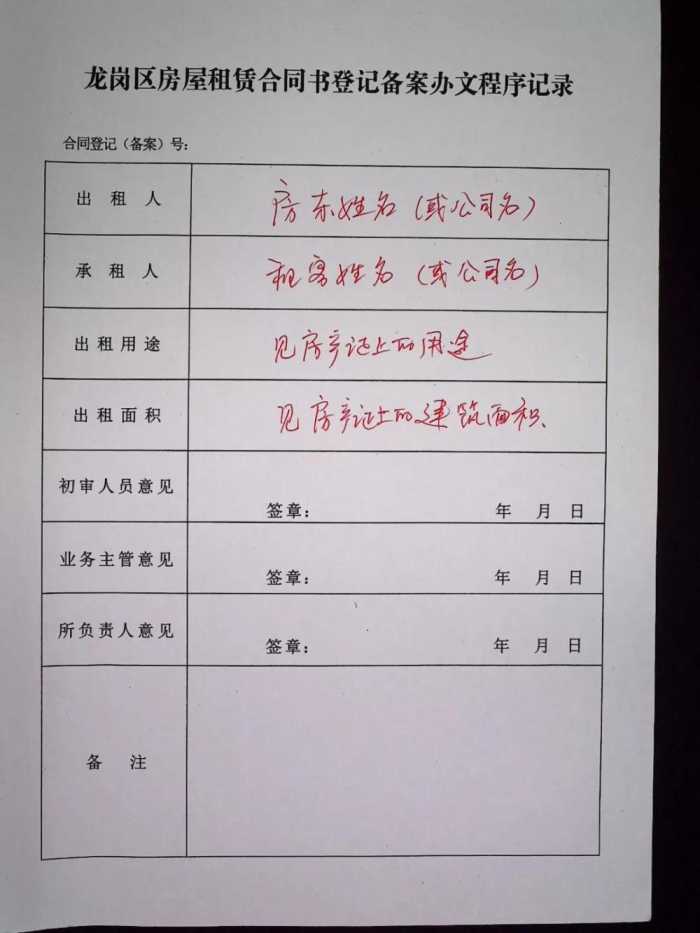 龙岗区房屋租赁合同书登记备案办文程序记录
合同登记（备案）号:
出租人 房东姓名（或公司名）
承租人 租客姓名（或公司名）
出租用途 见房产证上的用途
出租面积 见房产证上的建筑面积.
初审人员意见 签章： 年 月 日
业务主管意见 签章： 年 月 日
所负责人意见 签章： 年 月 日
备注